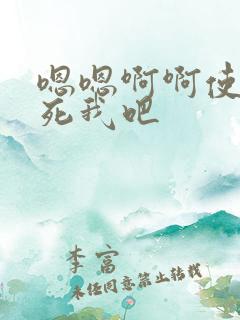 嗯嗯啊啊使
死我吧
李富
未经同意禁止转载